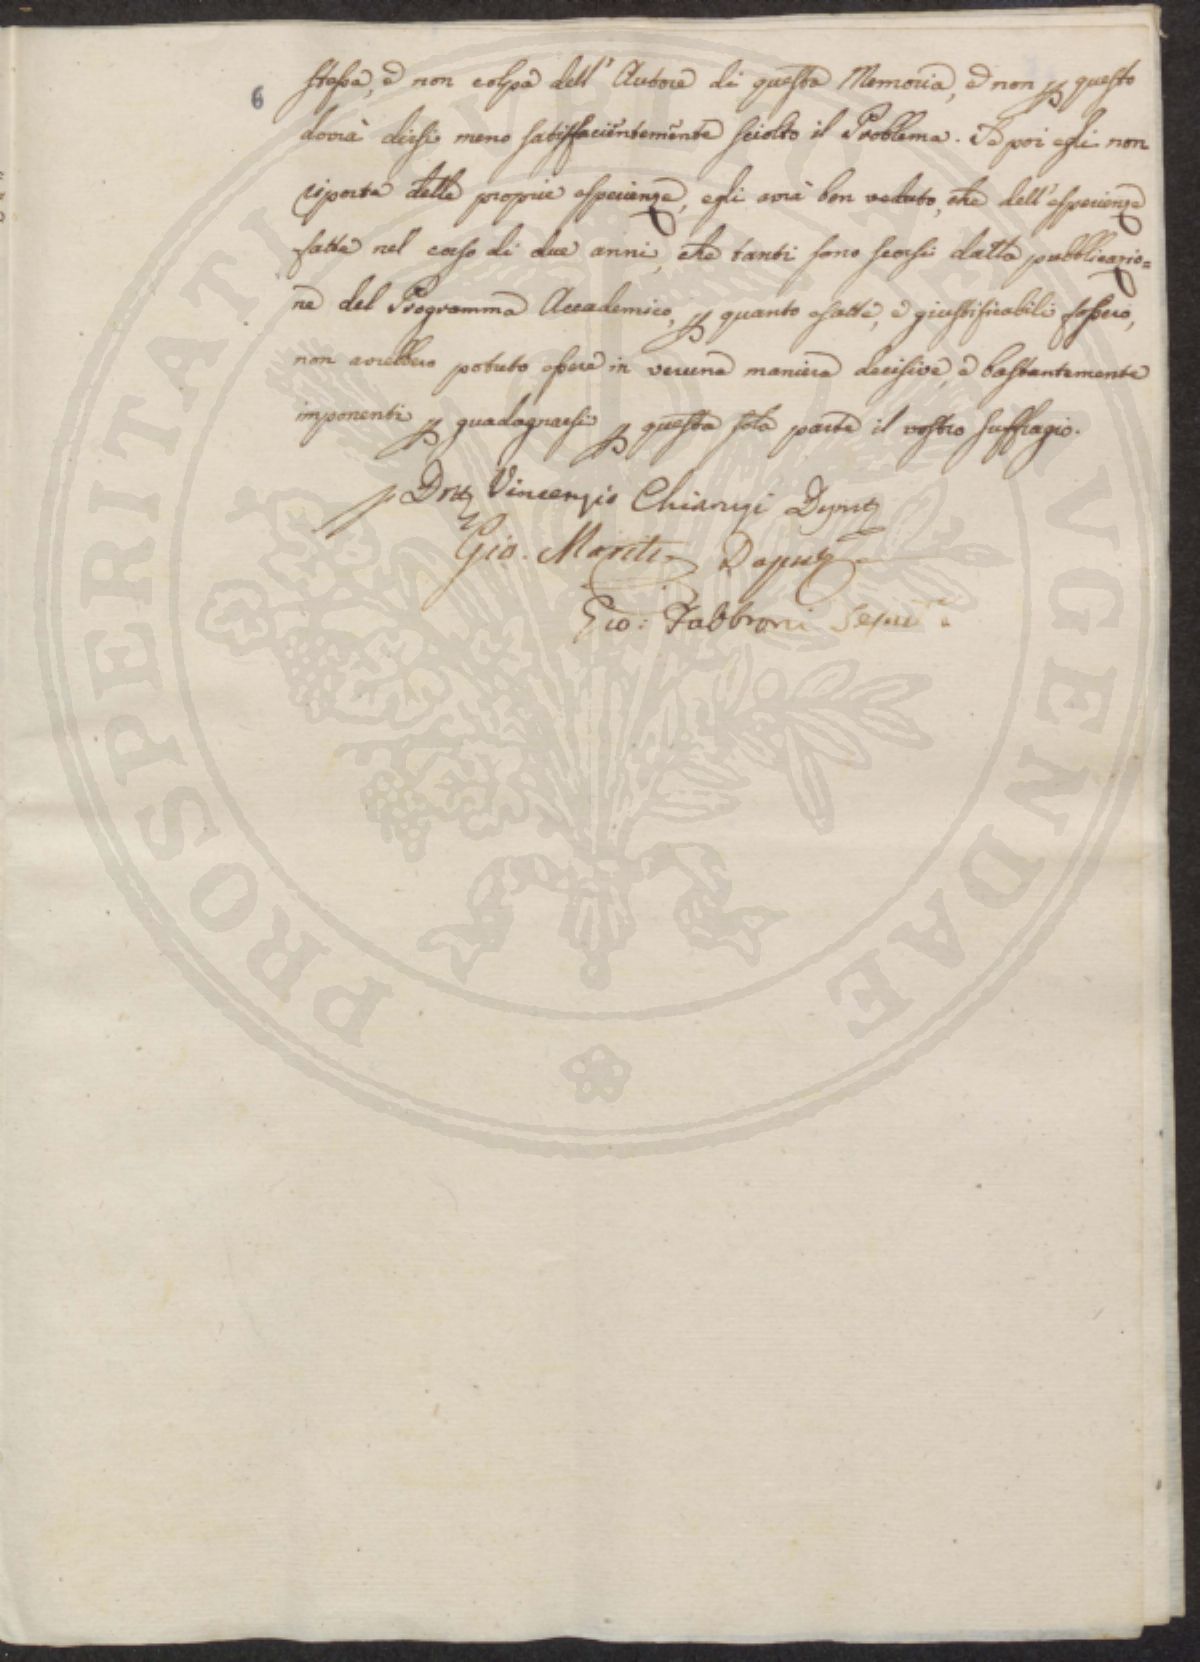 6
stessa, e non colpa dell'Autore di questa Memoria, e non p questo
dovrà dirsi meno satisfacientemente sciolto il Problema. Se poi egli non
riporta delle proprie esperienze, egli avrà ben veduto, che dell'esperienze
fatte nel corso di due anni, che tanti sono scorsi dalla pubblicazio=
ne del Programma Accademico, p quanto esatte, e giustificabili fossero,
non avrebbero potuto essere in veruna maniera decisive, e bastantemente
imponenti p guadagnarsi p questa sola parte il vostro suffragio.
Dott Vincenzio Chiarugi Deput
Gio. Mariti Deput
Gio: Fabbroni
PROSPERITATI
AVGENDAE